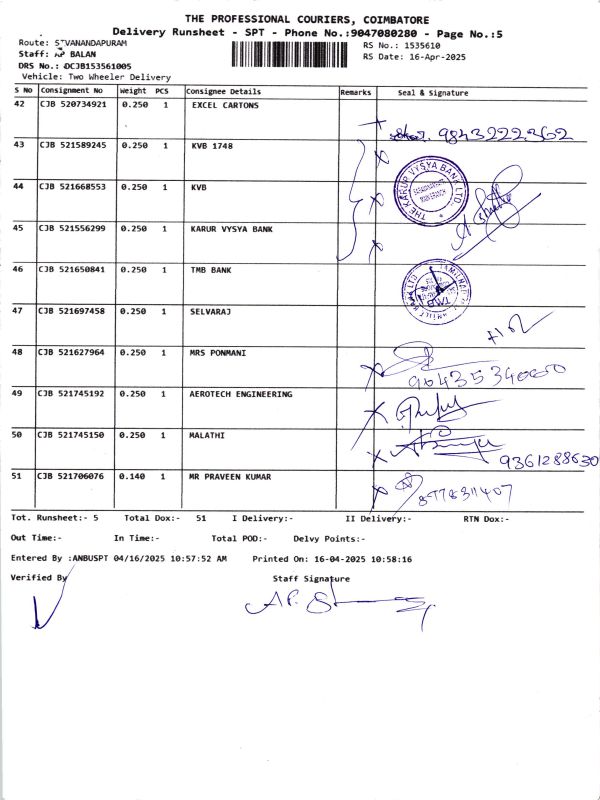 THE PROFESSIONAL COURIERS, COIMBATORE
Delivery Runsheet - SPT - Phone No.:9047080280 - Page No.:5
Route: SIVANANDAPURAM
RS No.: 1535610
Staff: AP BALAN
RS Date: 16-Apr-2025
DRS No.: DCJB153561005
Vehicle: Two Wheeler Delivery
S No Consignment No Weight PCS Consignee Details Remarks Seal & Signature
42 CJB 520734921 0.250 1 EXCEL CARTONS
9843222362
43 CJB 521589245 0.250 1 KVB 1748
THE KARUR VYSYA BANK LTD.
44 CJB 521668553 0.250 1 KVB
45 CJB 521556299 0.250 1 KARUR VYSYA BANK
46 CJB 521650841 0.250 1 TMB BANK
47 CJB 521697458 0.250 1 SELVARAJ
48 CJB 521627964 0.250 1 MRS PONMANI
49 CJB 521745192 0.250 1 AEROTECH ENGINEERING
50 CJB 521745150 0.250 1 MALATHI
9361288630
51 CJB 521706076 0.140 1 MR PRAVEEN KUMAR
Tot. Runsheet:- 5 Total Dox:- 51 I Delivery:- II Delivery:- RTN Dox:-
Out Time:- In Time:- Total POD:- Delvy Points:-
Entered By :ANBUSPT 04/16/2025 10:57:52 AM Printed On: 16-04-2025 10:58:16
Verified By Staff Signature